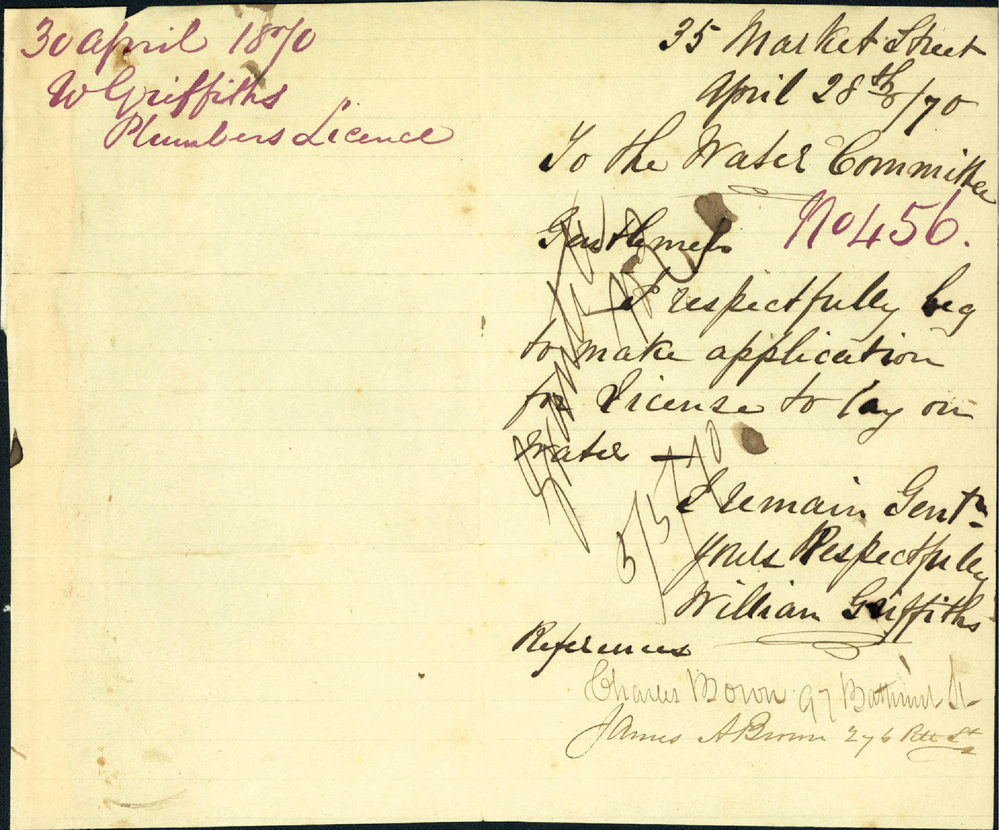 30 april 1870
W Griffiths
Plumbers Licence
35 Market Street
April 28th/70
To the Water Committee
Gentlemen
No 456.
I respectfully beg
to make application
for License to lay on
Water —
I remain Gentn
Yours Respectfully
William Griffiths
References
Charles Bown 97 Bathurst St
James A Brown 276 Pitt St
Granted
5/5/70